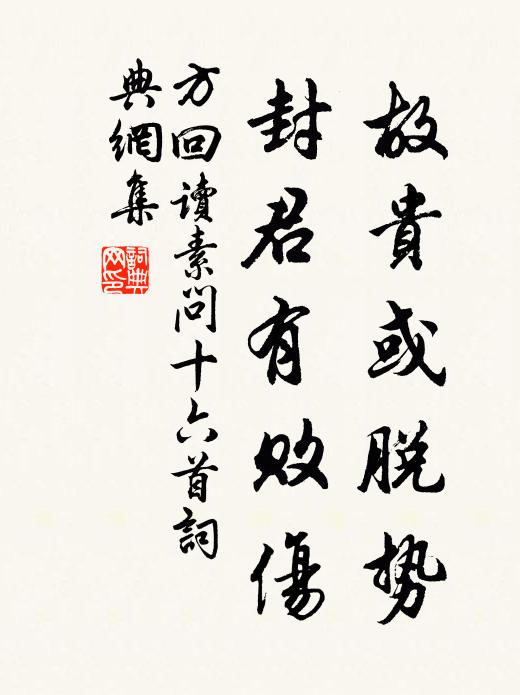 故貴或脫勢
封君有敗傷
方回讀素問十六首詞
典網集
詞典網印